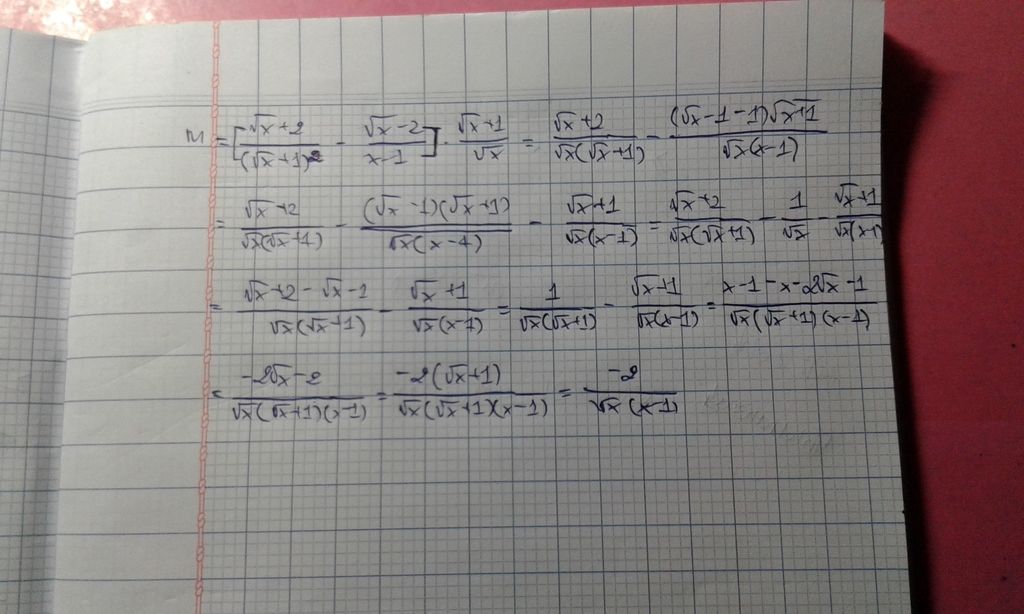 M = [(√x+2)/(√x+1)² - (√x-2)/(x-1)] . (√x+1)/√x = (√x+2)/(√x(√x+1)) - ((√x-1-1)√x+1)/(√x(x-1))
= (√x+2)/(√x(√x+1)) - ((√x-1)(√x+1))/(√x(x-1)) - (√x+1)/(√x(x-1)) = (√x+2)/(√x(√x+1)) - 1/√x - (√x+1)/(√x(x-1)
= (√x+2-√x-1)/(√x(√x+1)) - (√x+1)/(√x(x-1)) = 1/(√x(√x+1)) - (√x+1)/(√x(x-1)) = (x-1-x-2√x-1)/(√x(√x+1)(x-1))
= (-2√x-2)/(√x(√x+1)(x-1)) = (-2(√x+1))/(√x(√x+1)(x-1)) = -2/(√x(x-1))